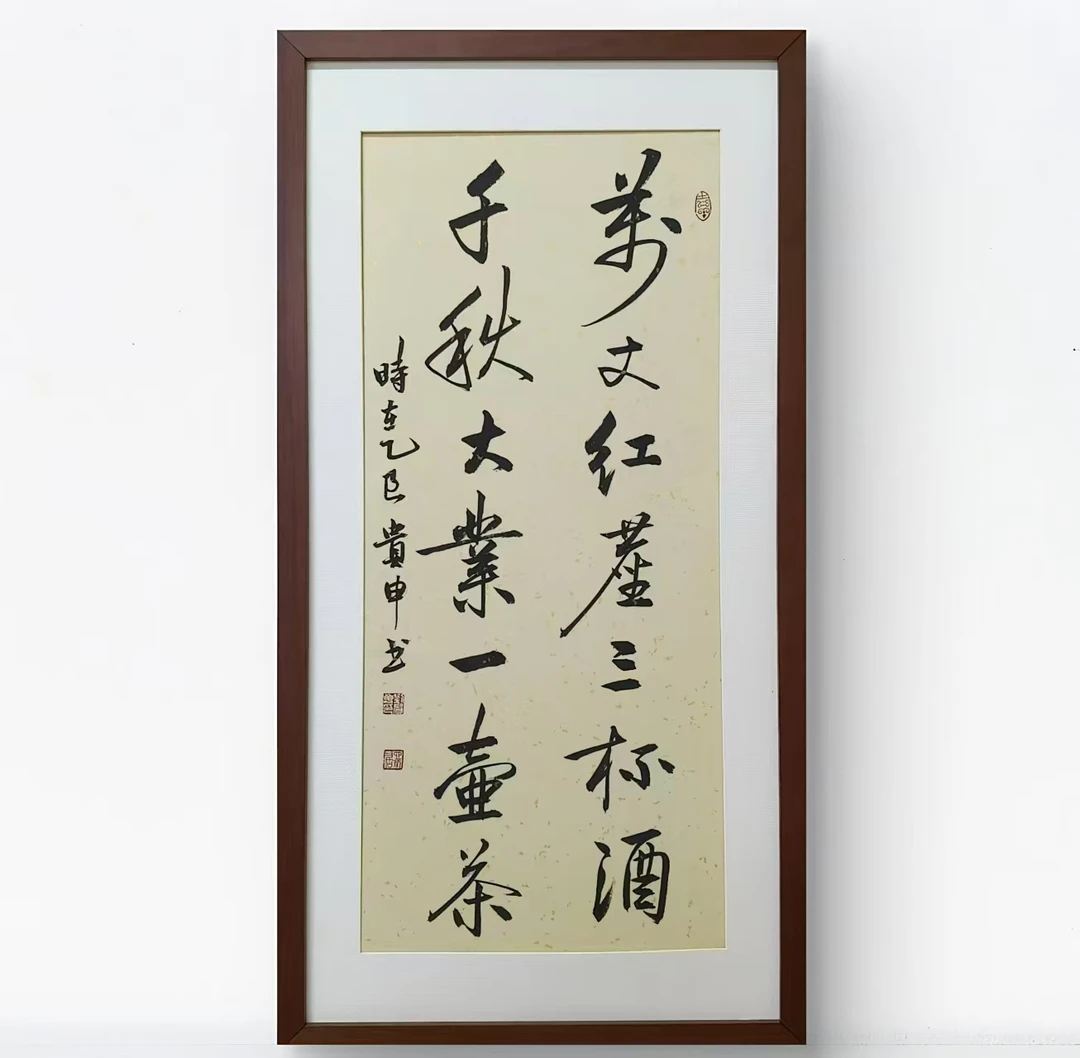 萬丈红塵三杯酒
千秋大業一壺茶
時在乙巳貴申书